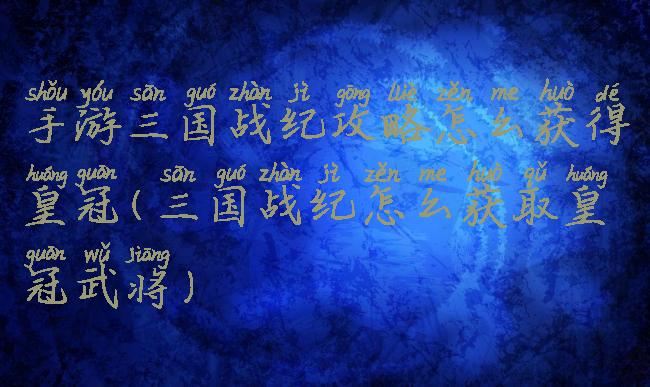 shǒu yóu sān guó zhàn jì gōng lüè zěn me huò dé
手游三国战纪攻略怎么获得
huáng quān sān guó zhàn jì zěn me huò qǔ huáng
皇冠(三国战纪怎么获取皇
quān wǔ jiāng
冠武将)